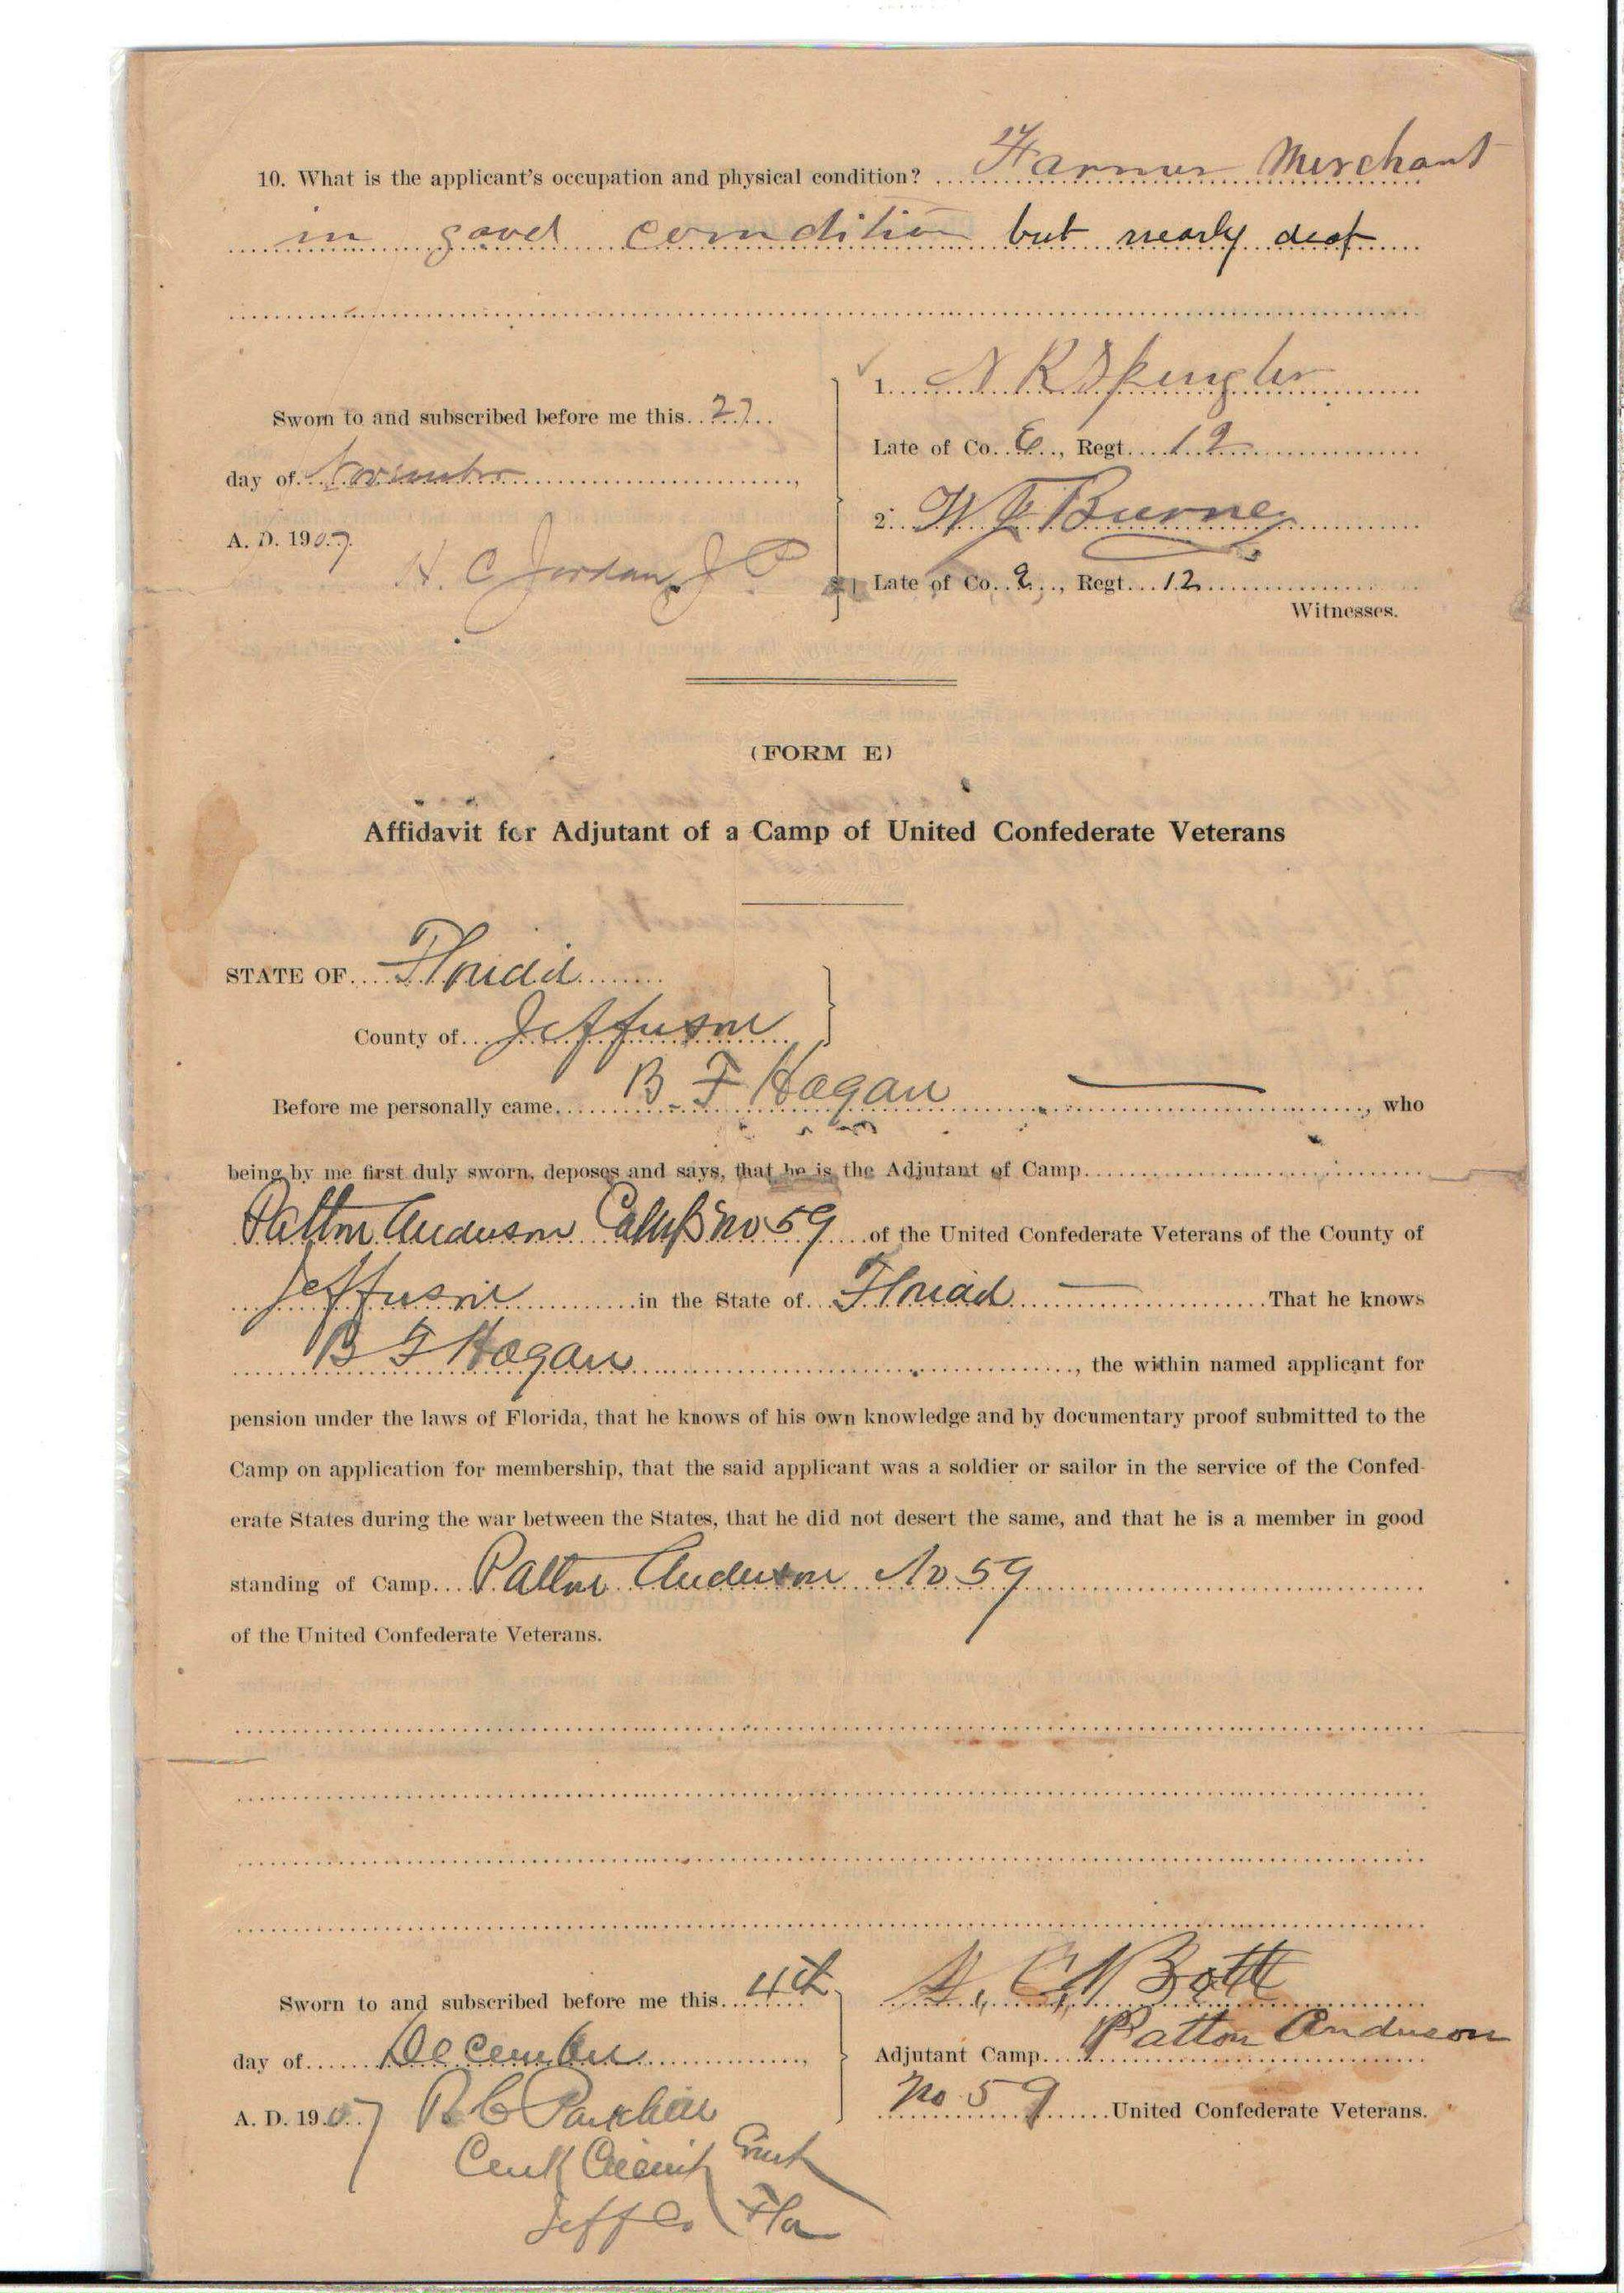 10. What is the applicant's occupation and physical condition? Farmer Merchant
in good condition but nearly deaf
1. N R Spengler
Sworn to and subscribed before me this 27
Late of Co. E, Regt. 12
day of November,
2. W J Burney
A. D. 1907
H. C Jordan J P
Late of Co. , Regt. 12
Witnesses.
(FORM E)
Affidavit for Adjutant of a Camp of United Confederate Veterans
STATE OF Florida
County of Jefferson
Before me personally came B. F Hogan, who
being by me first duly sworn, deposes and says, that he is the Adjutant of Camp
Patton Anderson Camp no 59 of the United Confederate Veterans of the County of
Jefferson in the State of Florida That he knows
B F Hogan, the within named applicant for
pension under the laws of Florida, that he knows of his own knowledge and by documentary proof submitted to the
Camp on application for membership, that the said applicant was a soldier or sailor in the service of the Confed-
erate States during the war between the States, that he did not desert the same, and that he is a member in good
standing of Camp Patton Anderson No 59
of the United Confederate Veterans.
Sworn to and subscribed before me this 4th
Bott
day of December,
Adjutant Camp Patton Anderson
A. D. 1907 R C Parkhill
No 59 United Confederate Veterans.
Clerk Circuit Court
Jeff Co Fla